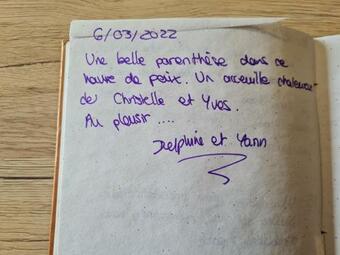 6/03/2022
Une belle parenthèse dans ce
havre de paix. Un acceuille chaleureux
de Christelle et Yves.
Au plaisir ....
Delphine et Yann